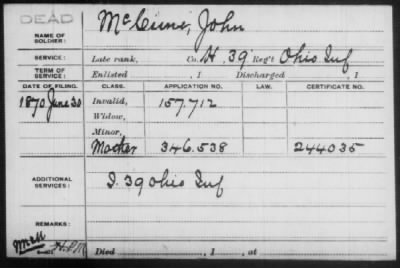 DEAD
NAME OF SOLDIER: McCune, John
SERVICE: Late rank, Co. H, 39 Reg't Ohio Inf
TERM OF SERVICE: Enlisted , 1 Discharged , 1
DATE OF FILING. CLASS. APPLICATION NO. LAW. CERTIFICATE NO.
1870 June 30 Invalid, 157.712
Widow,
Minor,
Mother 346.538 244035
ADDITIONAL SERVICES: I. 39 Ohio Inf
REMARKS:
Died , 1 , at